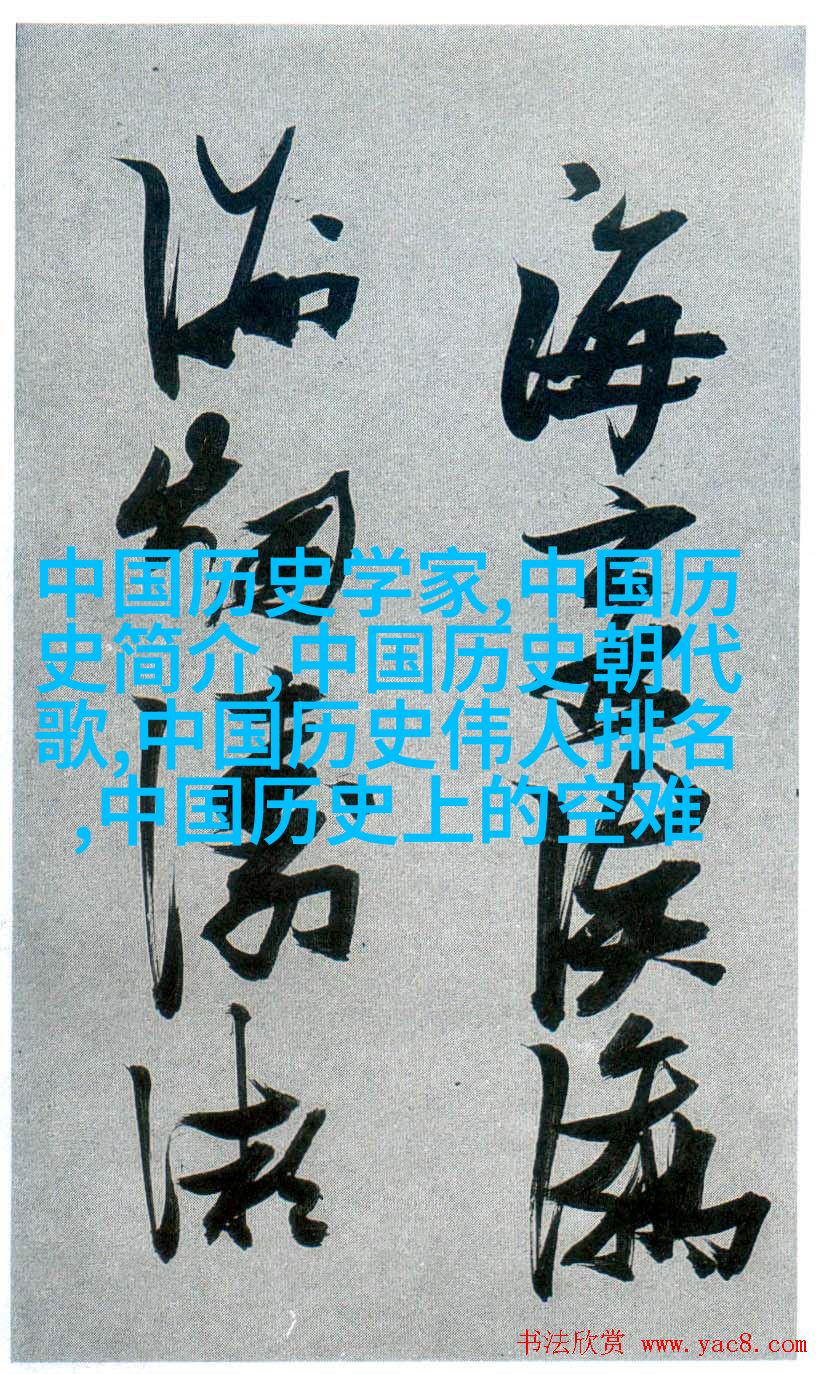 海客談瀛
洲烟濤微
中国历史学家,中国历
史简介,中国历史朝代
歌,中国历史伟人排名
,中国历史上的空难
书法欣赏 www.yac8.com